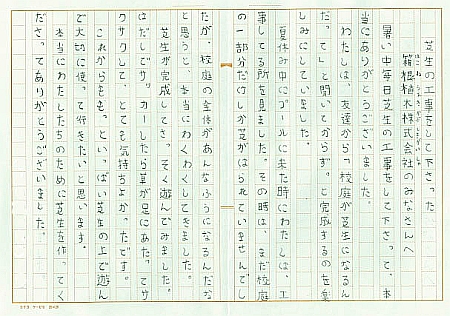 芝生の工事をして下さった
箱根植木株式会社のみなさんへ
暑い中毎日芝生の工事をして下さって、本
当にありがとうございました。
わたしは、友達から「校庭が芝生になるん
だって」と聞いてからず。と完成するのを楽
しみにしていました。
夏休み中にプールに来た時にわたしは、工
事してる所を見ました。その時は、まだ校庭
の一部分だけしか芝がはられていませんでし
たが、校庭の全体があんなふうになるんだな
と思うと、本当にわくわくしてきました。
芝生が完成してさっそく遊んでみました。
はだしでサッカーしたら草が足にあたってサ
クサクして、とても気持ちよかったです。
これからももっといっぱい芝生の上で遊ん
で大切に使って行きたいと思います。
本当にわたしたちのために芝生を作ってく
ださってありがとうございました。